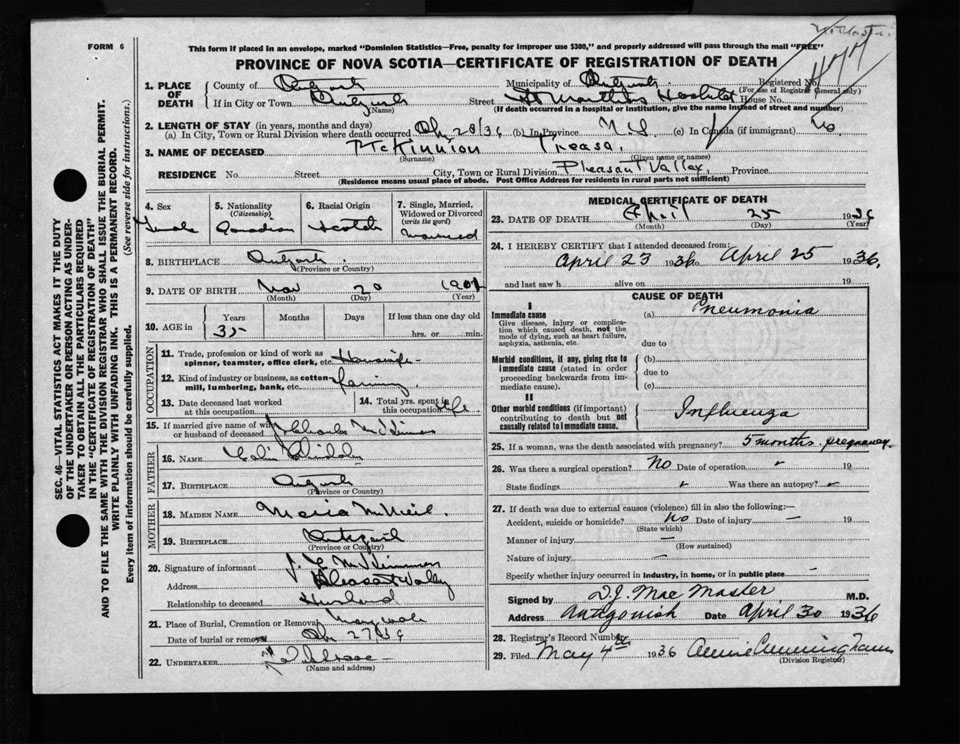 FORM 6
This form if placed in an envelope, marked "Dominion Statistics—Free, penalty for improper use $300," and properly addressed will pass through the mail "FREE"
PROVINCE OF NOVA SCOTIA—CERTIFICATE OF REGISTRATION OF DEATH
SEC. 46—VITAL STATISTICS ACT MAKES IT THE DUTY
OF THE UNDERTAKER OR PERSON ACTING AS UNDER-
TAKER TO OBTAIN ALL THE PARTICULARS REQUIRED
IN THE "CERTIFICATE OF REGISTRATION OF DEATH"
AND TO FILE THE SAME WITH THE DIVISION REGISTRAR WHO SHALL ISSUE THE BURIAL PERMIT.
WRITE PLAINLY WITH UNFADING INK. THIS IS A PERMANENT RECORD.
Every item of information should be carefully supplied. (See reverse side for instructions.)
1. PLACE OF DEATH County of Municipality of Registered No.
(For use of Registrar General only)
If in City or Town Street St Martha's Hospital House No.
(Name) (If death occurred in a hospital or institution, give the name instead of street and number)
2. LENGTH OF STAY (in years, months and days)
(a) In City, Town or Rural Division where death occurred (b) In Province N.S. (c) In Canada (if immigrant) No
3. NAME OF DECEASED McKinnion Treasa.
(Surname) (Given name or names)
RESIDENCE No. Street City, Town or Rural Division Pleasant Valley, Province
(Residence means usual place of abode. Post Office Address for residents in rural parts not sufficient)
4. Sex Female
5. Nationality (Citizenship) Canadian
6. Racial Origin Scotch
7. Single, Married, Widowed or Divorced (write the word) Married
8. BIRTHPLACE
(Province or Country)
9. DATE OF BIRTH 20
(Month) (Day) (Year)
10. AGE in Years Months Days If less than one day old
35 hrs. or min.
OCCUPATION
11. Trade, profession or kind of work as spinner, teamster, office clerk, etc. Housewife
12. Kind of industry or business, as cotton mill, lumbering, bank, etc. farming
13. Date deceased last worked at this occupation
14. Total yrs. spent in this occupation life
15. If married give name of wife or husband of deceased Charles
FATHER
16. NAME
17. BIRTHPLACE
(Province or Country)
MOTHER
18. MAIDEN NAME McNeil
19. BIRTHPLACE
(Province or Country)
20. Signature of informant
Address Pleasant Valley
Relationship to deceased Husband
21. Place of Burial, Cremation or Removal
Date of burial or removal 27/36
22. UNDERTAKER
(Name and address)
MEDICAL CERTIFICATE OF DEATH
23. DATE OF DEATH April 25 1936
(Month) (Day) (Year)
24. I HEREBY CERTIFY that I attended deceased from:
April 23 1936 to April 25 1936,
and last saw h alive on 19
CAUSE OF DEATH
I
Immediate cause (a) Pneumonia
Give disease, injury or complica-
tion which caused death, not the
mode of dying, such as heart failure,
asphyxia, asthenia, etc. due to
Morbid conditions, if any, giving rise to (b)
immediate cause (stated in order due to
proceeding backwards from im-
mediate cause). (c)
II
Other morbid conditions (if important)
contributing to death but not
causally related to immediate cause. Influenza
25. If a woman, was the death associated with pregnancy? 5 months pregnancy
26. Was there a surgical operation? No Date of operation 19
State findings Was there an autopsy?
27. If death was due to external causes (violence) fill in also the following:—
Accident, suicide or homicide? No Date of injury — 19
(State which)
Manner of injury —
(How sustained)
Nature of injury —
Specify whether injury occurred in industry, in home, or in public place —
Signed by D.J. MacMaster M.D.
Address Antigonish Date April 30 1936
28. Registrar's Record Number
29. Filed May 4th 1936 Annie Cunningham
(Division Registrar)